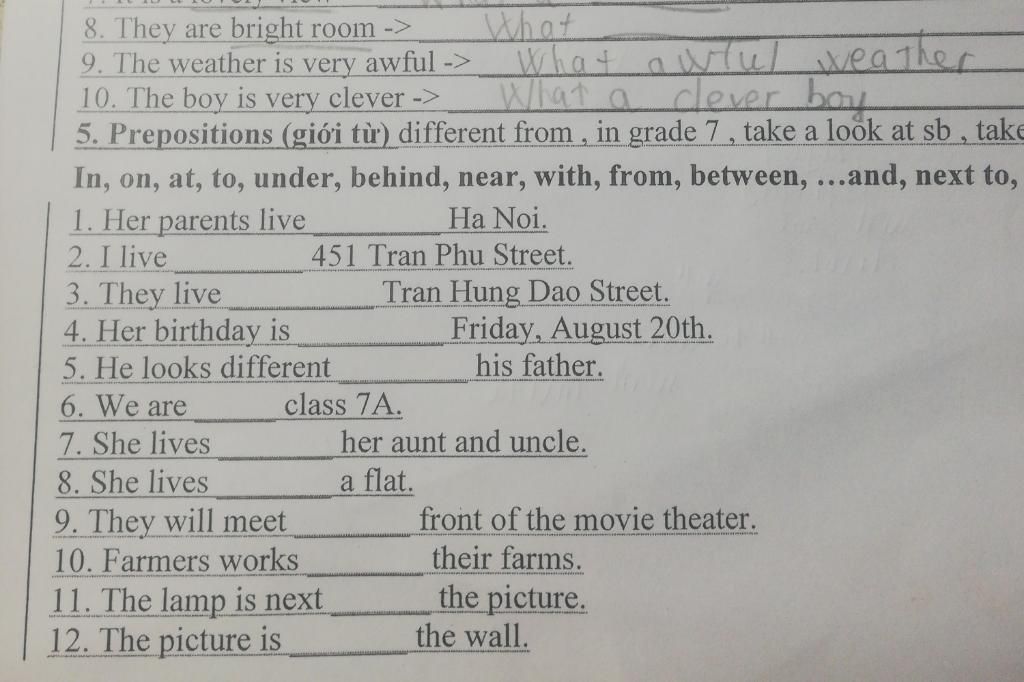 7. It is a lovely view
8. They are bright room -> What
9. The weather is very awful -> What awful weather
10. The boy is very clever -> What a clever boy
5. Prepositions (giới từ) different from , in grade 7 , take a look at sb , take
In, on, at, to, under, behind, near, with, from, between, …and, next to,
1. Her parents live ________ Ha Noi.
2. I live ________ 451 Tran Phu Street.
3. They live ________ Tran Hung Dao Street.
4. Her birthday is ________ Friday, August 20th.
5. He looks different ________ his father.
6. We are _____ class 7A.
7. She lives _______ her aunt and uncle.
8. She lives _______ a flat.
9. They will meet _______ front of the movie theater.
10. Farmers works _______ their farms.
11. The lamp is next ______ the picture.
12. The picture is _______ the wall.